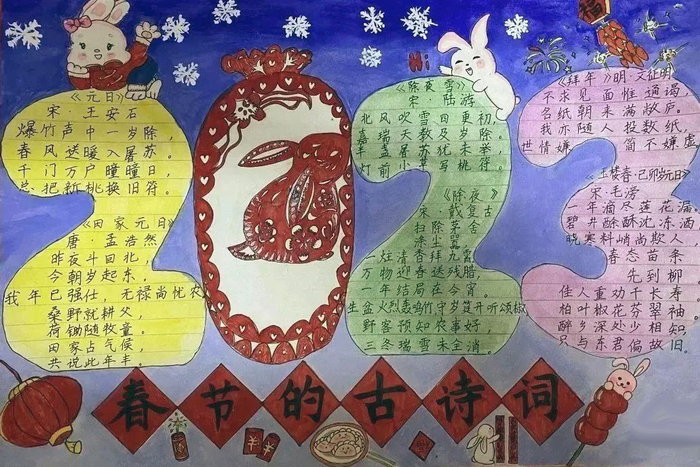 《元日》
宋·王安石
爆竹声中一岁除，
春风送暖入屠苏。
千门万户曈曈日，
总把新桃换旧符。
《田家元日》
唐·孟浩然
昨夜斗回北，
今朝岁起东。
我年已强仕，无禄尚忧农。
桑野就耕父，
荷锄随牧童。
田家占气候，
共说此年丰。
Hi
《除夜雪》
宋·陆游
北风吹雪四更初，
嘉瑞天教及岁除。
半盏屠苏犹未举，
灯前小草写桃符。
《除夜》
宋 戴复古
扫除茅舍
涤尘嚣
一炷清香拜九霄
万物迎春送残腊，
一年结局在今宵。
生盆火烈轰鸣竹，守岁筵开听颂椒
野客预知农事好，
三冬瑞雪未全消。
福
《拜年》明·文征明
不求见面惟通谒
名纸朝来满敝庐。
我亦随人投数纸，
世情嫌 简不嫌虚
玉楼春·己卯岁元日》
宋·毛滂
年滴尽莲花漏
碧井酴酥沈冻酒
晓寒料峭尚欺人
春态苗条
先到柳
佳人重劝千长寿
柏叶椒花芬翠袖。
醉乡深处少相知
只与东君偏故旧。
春节的古诗词